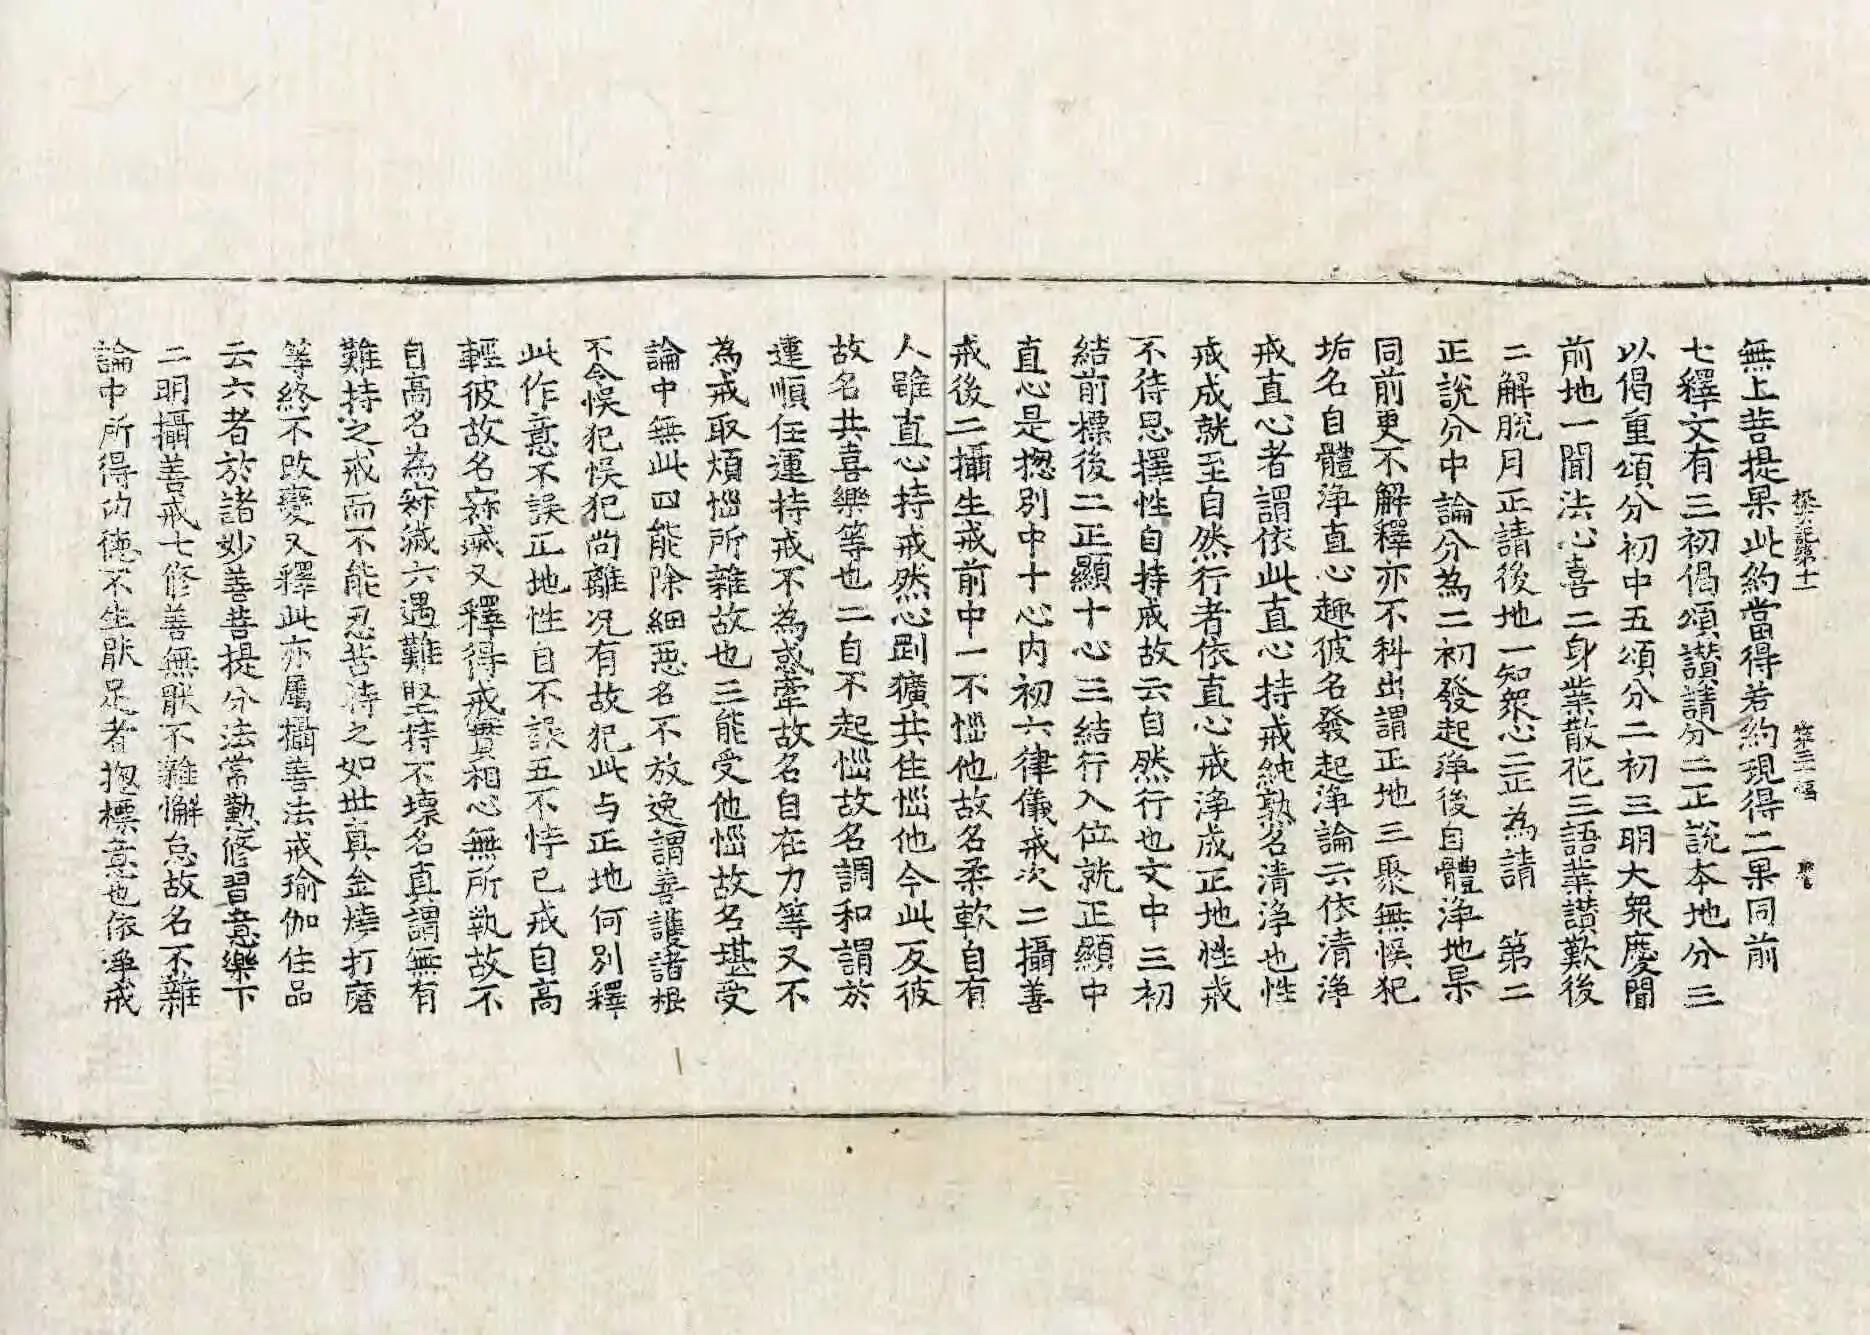 無上菩提果此約當得若約現得二果同前
探玄記第十一
七釋文有三初偈頌讃請分二正說本地分三
以偈重頌分初中五頌分二初三明大衆慶聞
前地一聞法心喜二身業散花三語業讃歎後
二解脫月正請後地一知衆心二正為請 第二
正說分中論分為二初發起淨後自體淨地果
同前更不解釋亦不科出謂正地三聚無悞犯
垢名自體淨直心趣彼名發起淨論云依清淨
戒直心者謂依此直心持戒純熟名清淨也性
戒成就至自然行者依直心戒淨成正地性戒
不待思擇性自持戒故云自然行也文中三初
結前標後二正顯十心三結行入位就正顯中
直心是揔別中十心内初六律儀戒次二攝善
戒後二攝生戒前中一不惱他故名柔軟自有
人雖直心持戒然心剛獷共住惱他今此反彼
故名共喜樂等也二自不起惱故名調和謂於
違順任運持戒不為惑牽故名自在力等又不
為戒取煩惱所雜故也三能受他惱故名堪受
論中無此四能除細惡名不放逸謂善護諸根
不令悞犯悞犯尚離况有故犯此与正地何別釋
此作意不誤正地性自不誤五不恃己戒自高
輕彼故名寂滅又釋得戒實相心無所執故不
自高名為寂滅六遇難堅持不壞名真謂無有
難持之戒而不能忍苦持之如世真金燒打磨
等終不改變又釋此亦屬攝善法戒瑜伽住品
云六者於諸妙善菩提分法常勤修習意樂下
二明攝善戒七修善無猒不雜懈怠故名不雜
論中所得功德不生猒足者揔標意也依淨戒